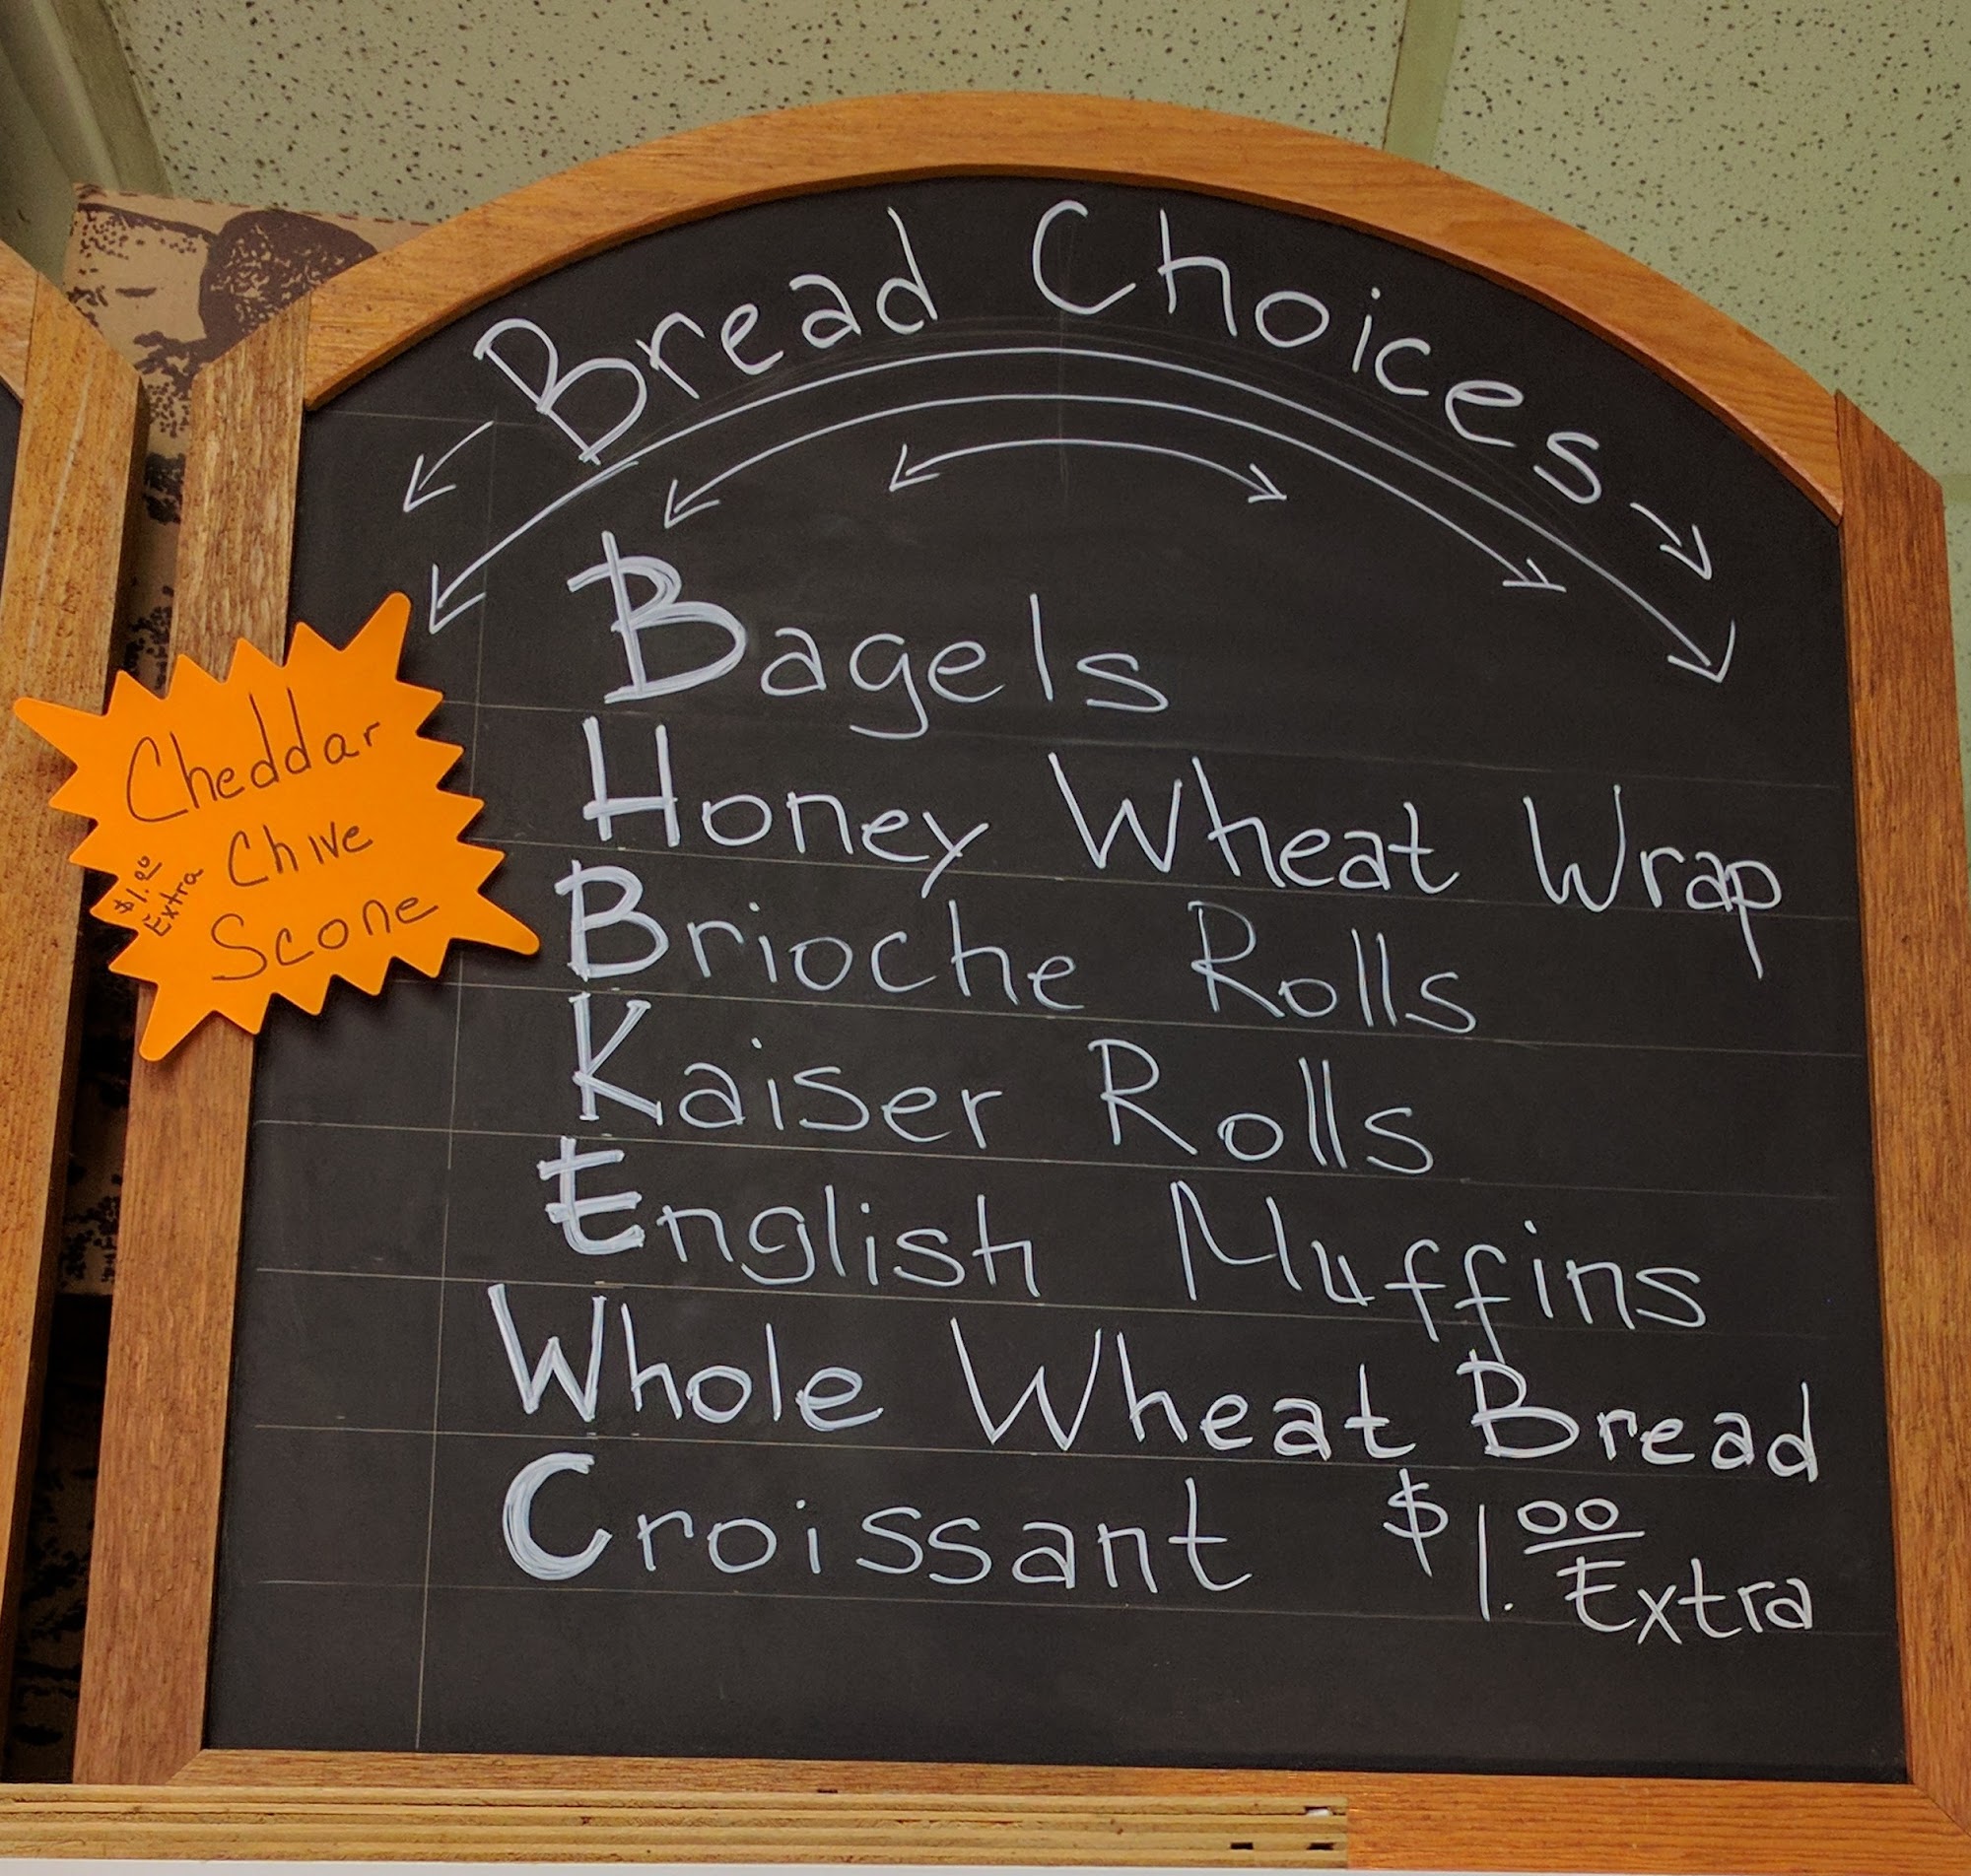 Bread Choices
Bagels
Honey Wheat Wrap
Brioche Rolls
Kaiser Rolls
English Muffins
Whole Wheat Bread
Croissant $1.00 Extra
Cheddar
Chive
Scone
$1.00
Extra